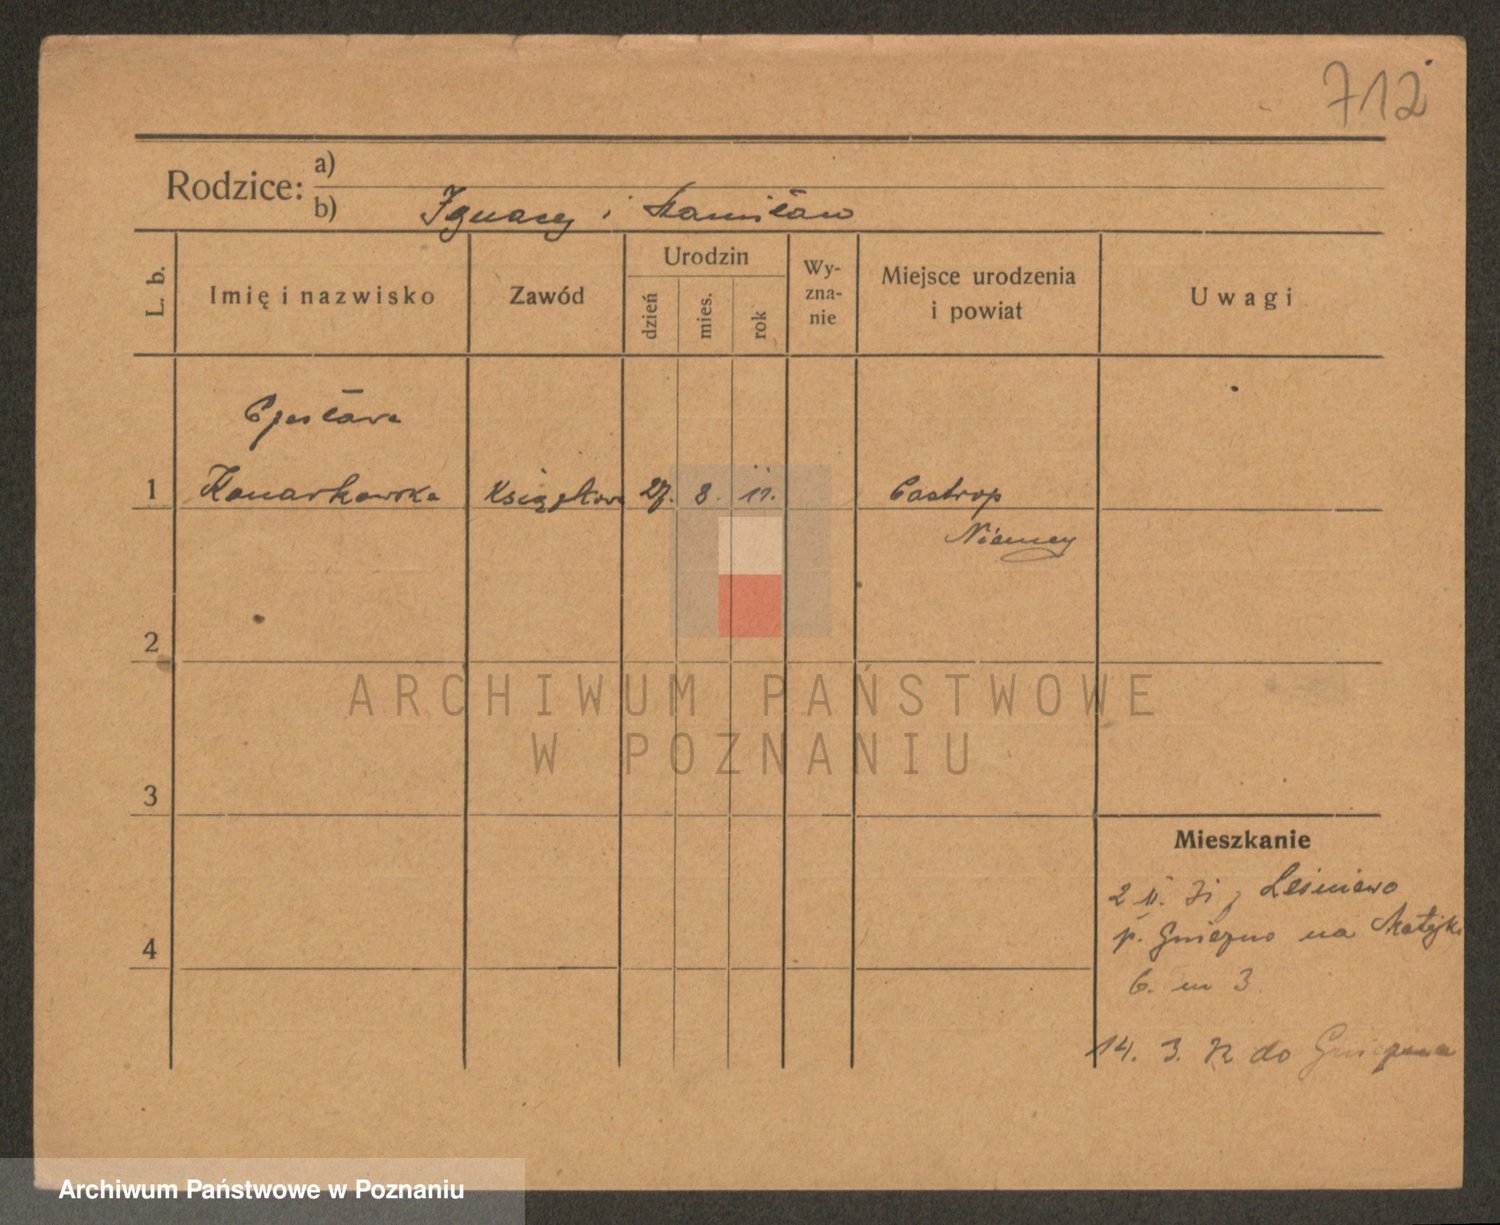 712
Rodzice: a)
b) Ignacy i Stanisław
L. b.
Imię i nazwisko
Zawód
Urodzin
dzień
mies.
rok
Wy-
zna-
nie
Miejsce urodzenia
i powiat
Uwagi
Czesława
1 Konarkowska Księgowa 27. 8. 11. Castrop
Niemcy
2
3
4
ARCHIWUM PAŃSTWOWE
W POZNANIU
Mieszkanie
2 11. 31 z Leśniewo
p. Gniezno na Matejki
6. m 3
14. 3. 32 do Gniezna
Archiwum Państwowe w Poznaniu